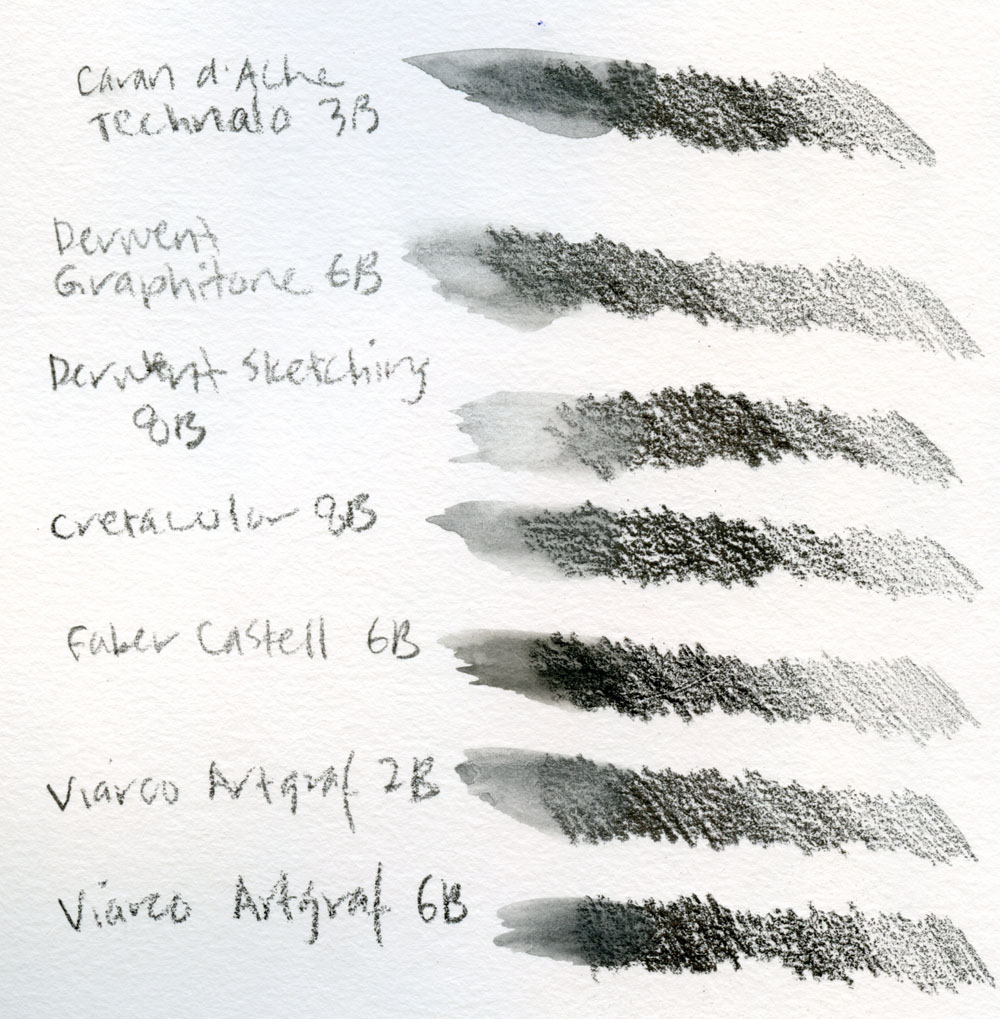 Caran d'Ache
Technalo 3B
Derwent
Graphitone 6B
Derwent Sketching
8B
Cretacolor 8B
Faber Castell 6B
Viarco Artgraf 2B
Viarco Artgraf 6B